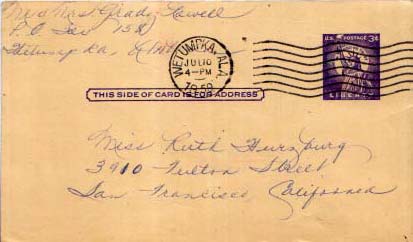 Mr & Mrs. Grady Howell
P.O. Box 152
Wetumpka, Ala
WETUMPKA, ALA.
JUL 10
4-PM
U.S. POSTAGE 3¢
LIBERTY
THIS SIDE OF CARD IS FOR ADDRESS
Miss Ruth
3910 Fulton Street
San Francisco, California